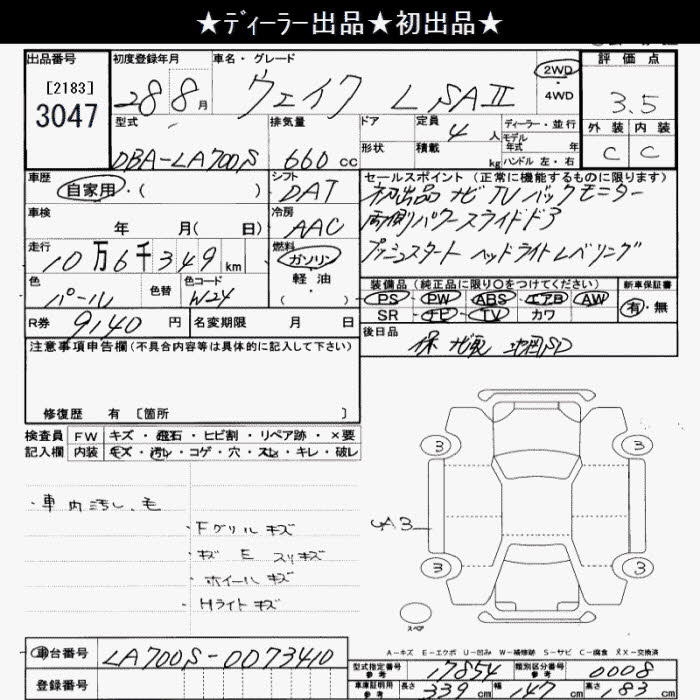 ★ディーラー出品★初出品★
出品番号 初度登録年月 車名・グレード 2WD ・4WD 評価点
[2183]
3047 28 8月 ウェイク L SAⅡ 3.5
型式 排気量 ドア 定員 4人 ディーラー・並行 外装 内装
形状 積載 kg モデル年式 年 ハンドル 左・右
DBA-LA700S 660cc C C
車歴 自家用・( ) シフト DAT セールスポイント(正常に機能するものに限ります)
初出品 ナビ TV バックモニター
車検 年 月( 日) 冷房 AAC 両側パワースライドドア
走行 10万6千349km 燃料 ガソリン・軽油・( ) プッシュスタート ヘッドライトレベリング
色 パール 色替 色コード W24 装備品(純正品に限り○をつけてください) 新車保証書
PS PW ABS エアB AW 有・無
R券 9140円 名変期限 月 日 SR ナビ TV カワ
注意事項申告欄(不具合内容等は具体的に記入して下さい) 後日品
修復歴 有 [箇所 ]
検査員 FW キズ・飛石・ヒビ割・リペア跡・×要
記入欄 内装 キズ・汚レ・コゲ・穴・スレ・キレ・破レ
・車内汚し、毛
・Fグリル キズ
・キズ E スリキズ
・ホイール キズ
・Hライト キズ
3 3
A3
3 3
スペア
A-キズ E-エクボ U-凹み W-補修跡 S-サビ C-腐食 X-交換済
車台番号 LA700S-0073410 型式指定番号 参考 17854 類別区分番号 参考 0008
登録番号 車庫証明用 参考 長さ 339cm 幅 147cm 高さ 183cm